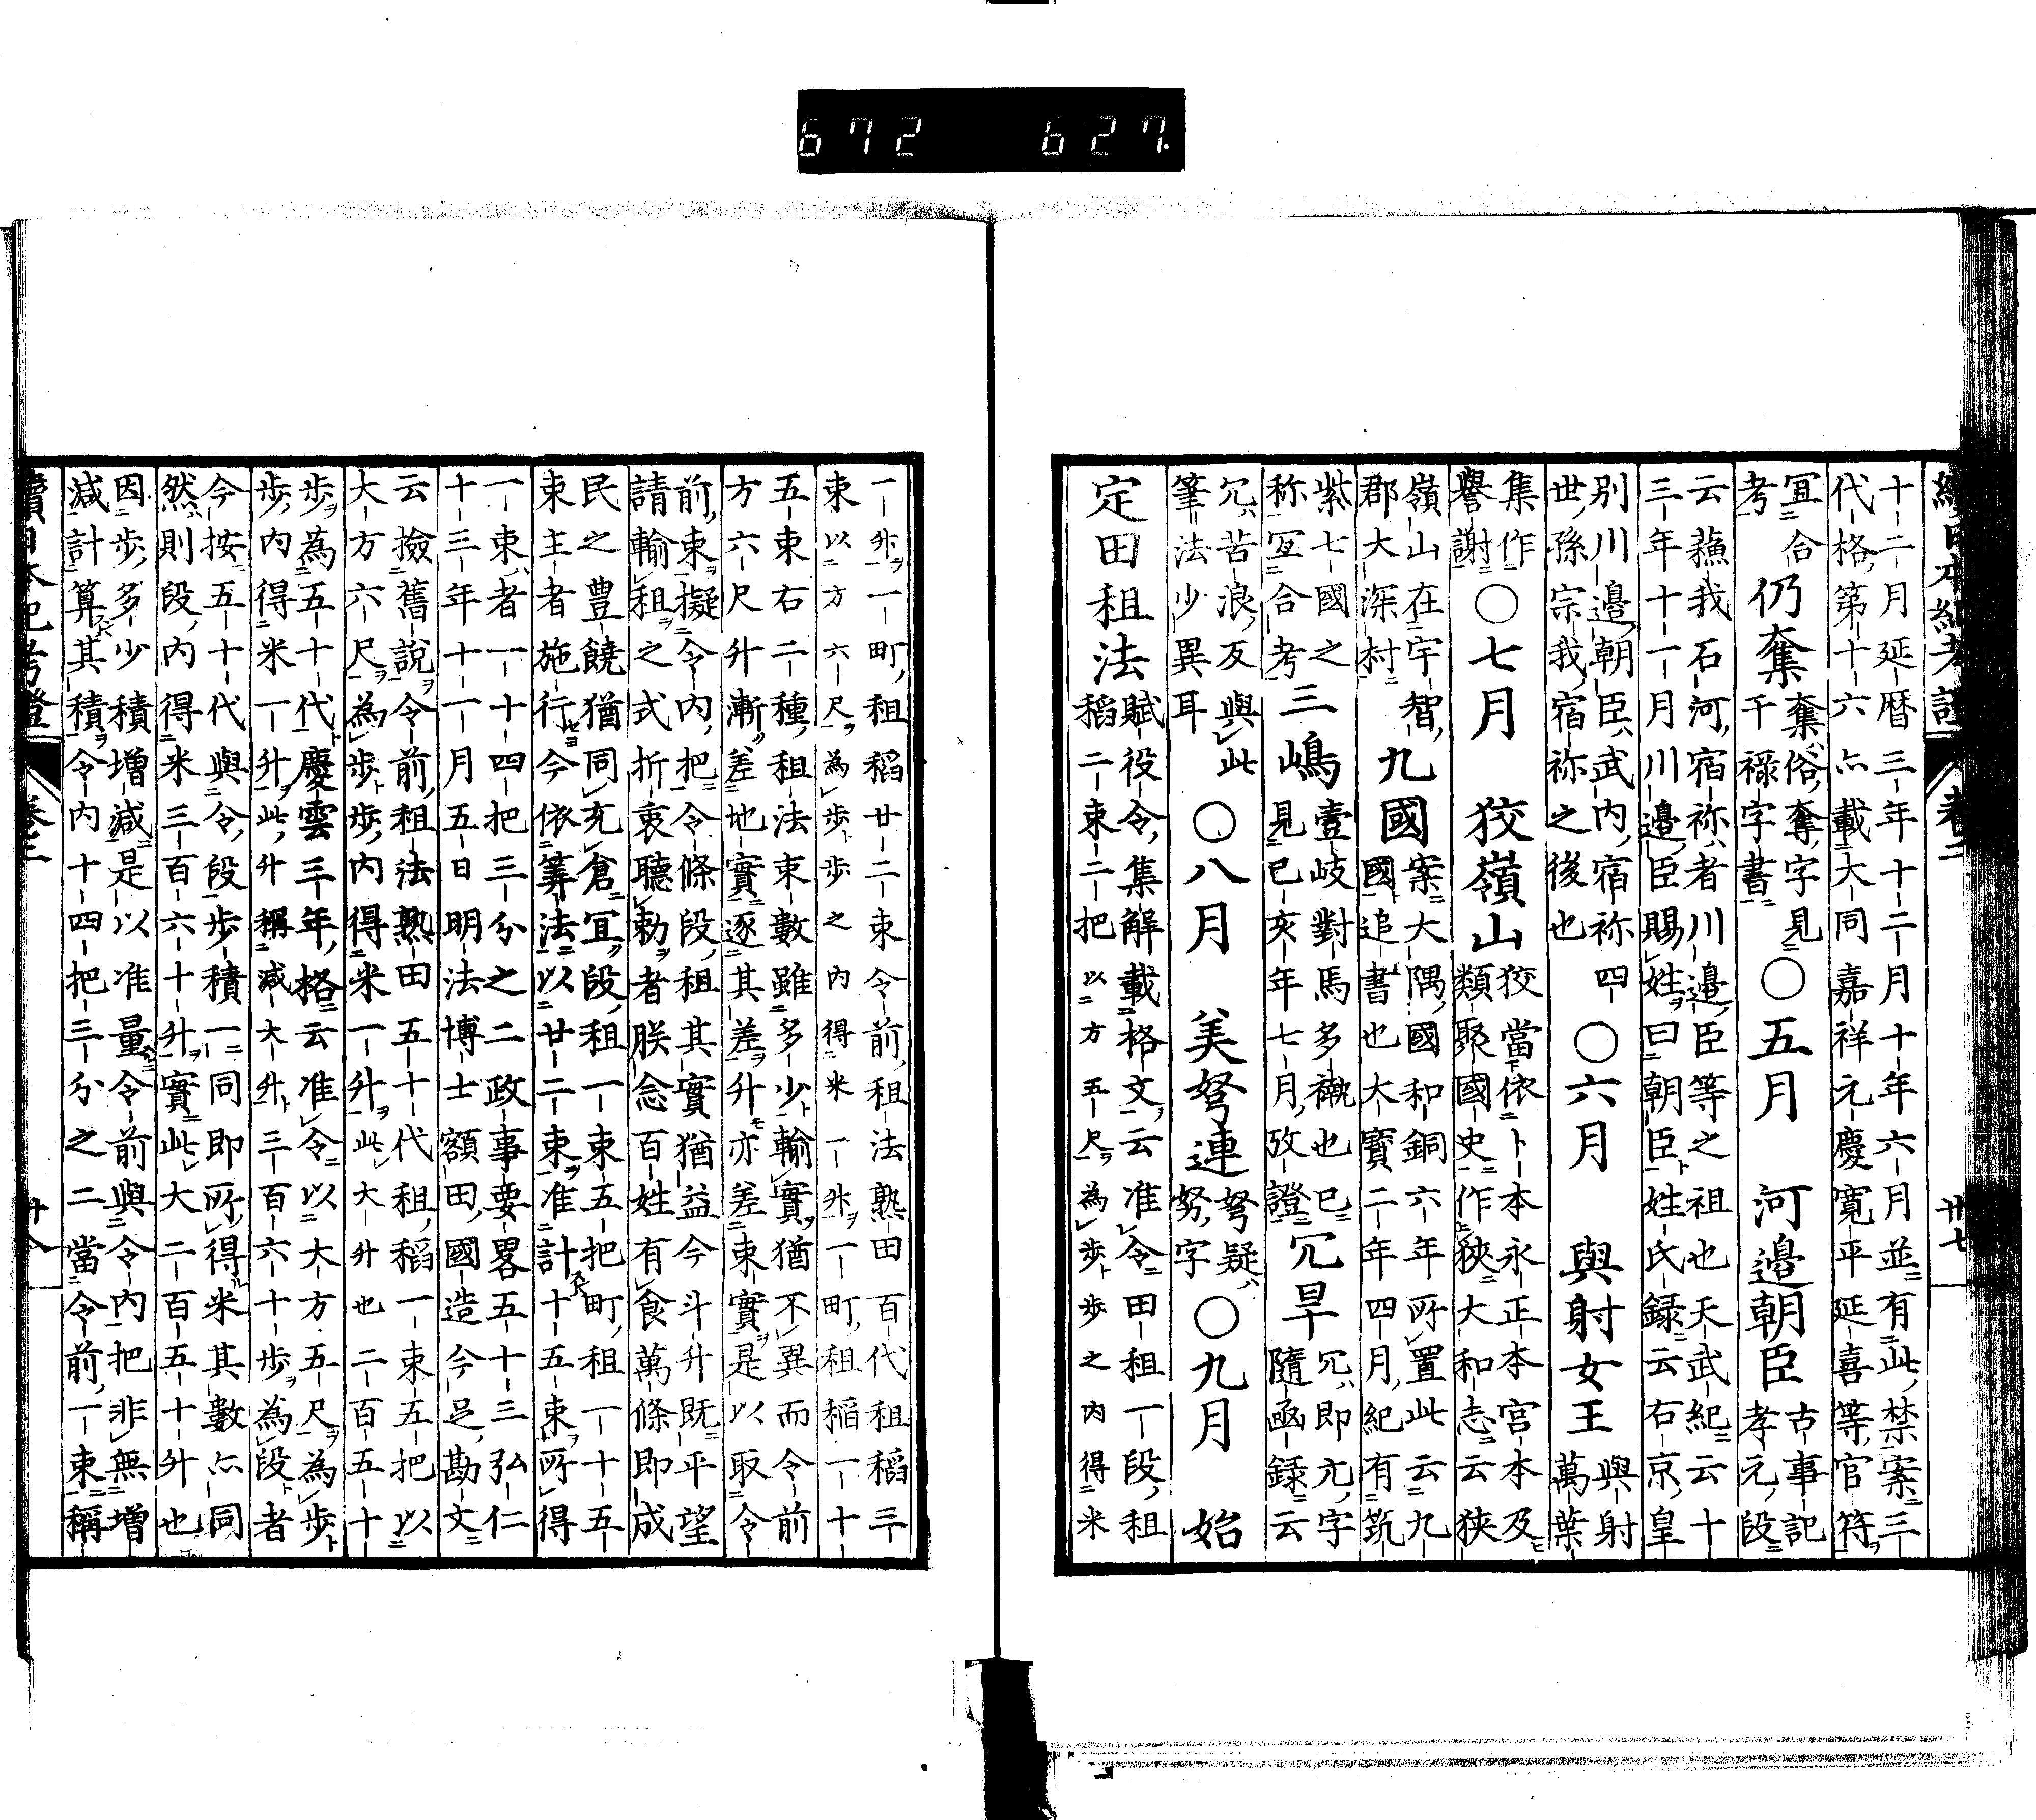 672 627.
十二月延暦三年十二月十年六月並有此禁案三
代格第十六亦載大同嘉祥元慶寛平延喜等官符
宜合
考
仍奪
奪俗奪字見
干禄字書
〇五月 河邉朝臣
古事記
孝元段
云蘓我石河宿祢者川邉臣等之祖也天武紀云十
三年十一月川邉臣賜姓曰朝臣姓氏録云右京皇
別川邉朝臣武内宿祢四
世孫宗我宿祢之後也
〇六月 與射女王
與射
萬葉
集作
譽謝
〇七月 狡嶺山
狡當依卜本永正本宮本及
類聚國史作狹大和志云狹
嶺山在宇智
郡大深村
九國
案大隅國和銅六年所置此云九
國追書也大寳二年四月紀有筑
紫七國之
称宜合考
三嶋
壹岐對馬多褹也已
見已亥年七月攷證
冗旱
冗即亢字
隨凾録云
冗苦浪反與此
筆法少異耳
〇八月 美弩連
弩疑
努字
〇九月 始
定田租法
賦役令集解載格文云准令田租一段租
稻二束二把以方五尺為歩歩之内得米
一升一町租稻廿二束令前租法熟田百代租稻三
束以方六尺為歩歩之内得米一升一町租稻一十
五束右二種租法束數雖多少輸實猶不異而令前
方六尺升漸差地實逐其差升亦差束實是以取令
前束擬令内把令條段租其實猶益今斗升既平望
請輸租之式折衷聽勅者朕念百姓有食萬條即成
民之豊饒猶同充倉宜段租一束五把町租一十五
束主者施行今依筭法以廿二束准計十五束所得
一束者一十四把三分之二政事要畧五十三弘仁
十三年十一月五日明法博士額田國造今足勘文
云撿舊說令前租法熟田五十代租稻一束五把以
大方六尺為歩歩内得米一升此大升也二百五十
歩為五十代慶雲三年格云准令以大方五尺為歩
歩内得米一升此升稱減大升三百六十歩為段者
今按五十代與令段歩積一同即所得米其數亦同
然則段内得米三百六十升實此大二百五十升也
因歩多少積増減是以准量令前與令内把非無増
減計算其積令内十四把三分之二當令前一束稱